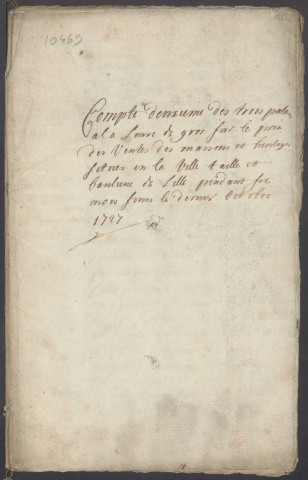 10469
Compte deuxieme des trois patars
a la Livre de gros sur le prix
des Ventes des maisons et heritages
scitués en la Ville taille et
banlieue de Lille pendant six
mois finis le dernier Octobre
1727